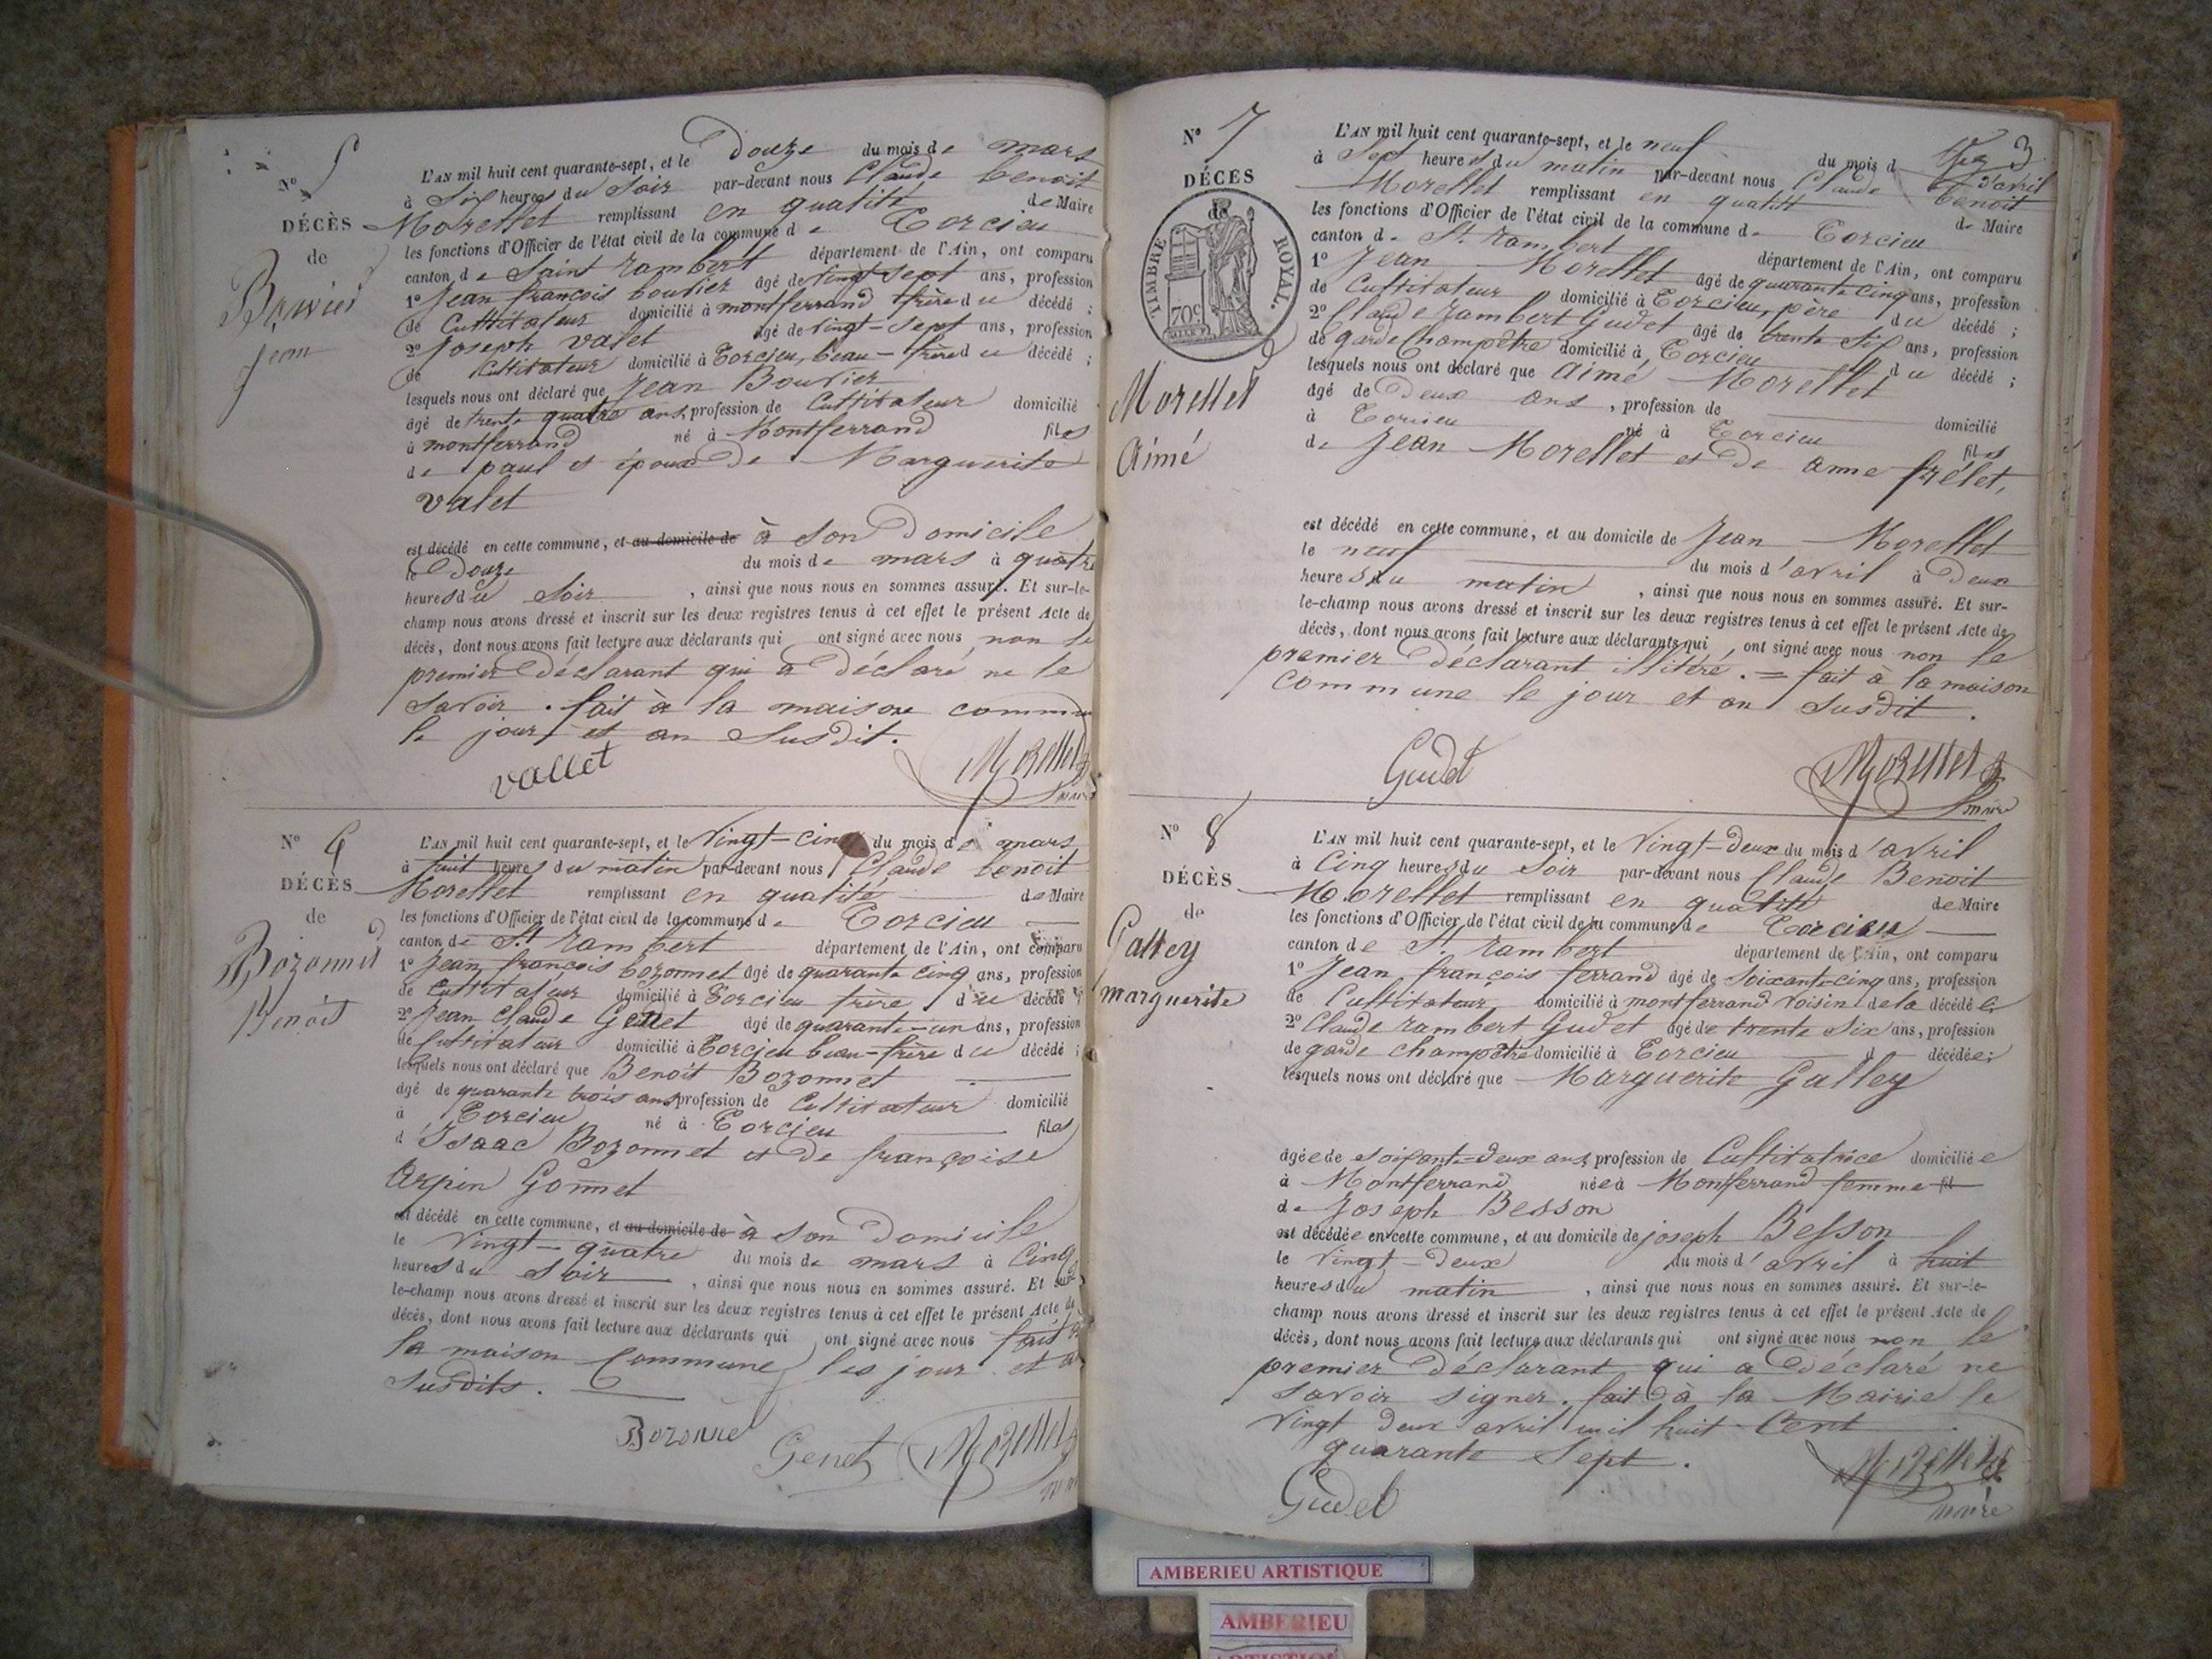 N° 5
DÉCÈS
de
Bouvier
Jean
L'AN mil huit cent quarante-sept, et le Douze du mois de mars
à Six heures du Soir par-devant nous Claude benoit
Morellet remplissant en qualité de Maire
les fonctions d'Officier de l'état civil de la commune de Torcieu
canton de Saint rambert département de l'Ain, ont comparu
1° Jean françois bouvier âgé de vingt sept ans, profession
de Cultivateur domicilié à montferrand frère du décédé ;
2° Joseph valet âgé de vingt-sept ans, profession
de Cultivateur domicilié à Torcieu, beau-frère du décédé ;
lesquels nous ont déclaré que Jean Bouvier
âgé de trente quatre ans, profession de Cultivateur domicilié
à montferrand né à Montferrand fils
de paul et époux de Marguerite
valet
est décédé en cette commune, et au domicile de à son Domicile
le Douze du mois de mars à quatre
heures du Soir , ainsi que nous nous en sommes assuré. Et sur-le-
champ nous avons dressé et inscrit sur les deux registres tenus à cet effet le présent Acte de
décès, dont nous avons fait lecture aux déclarants qui ont signé avec nous, non le
premier Déclarant qui a Déclaré ne le
savoir . fait à la maison commune
le jour et an Susdit.
vallet Morellet
maire
N° 6
DÉCÈS
de
Bozonnet
Benoit
L'AN mil huit cent quarante-sept, et le Vingt-cinq du mois de mars
à huit heures du matin par-devant nous Claude benoit
Morellet remplissant en qualité de Maire
les fonctions d'Officier de l'état civil de la commune de Torcieu
canton de St rambert département de l'Ain, ont comparu
1° Jean françois bozonnet âgé de quarante cinq ans, profession
de Cultivateur domicilié à Torcieu frère du décédé ;
2° Jean Claude Genet âgé de quarante-un ans, profession
de Cultivateur domicilié à Torcieu beau-frère du décédé ;
lesquels nous ont déclaré que Benoit Bozonnet
âgé de quarante trois ans profession de Cultivateur domicilié
à Torcieu né à Torcieu fils
d'Isaac Bozonnet et de françoise
Arpin Gonnet
est décédé en cette commune, et au domicile de à son Domicile
le Vingt-quatre du mois de mars à Cinq
heures du Soir , ainsi que nous nous en sommes assuré. Et sur-
le-champ nous avons dressé et inscrit sur les deux registres tenus à cet effet le présent Acte de
décès, dont nous avons fait lecture aux déclarants qui ont signé avec nous fait à
la maison Commune les jour et an
Susdits.
Bozonne Genet Morellet
N° 7
DÉCÈS
de
TIMBRE ROYAL.
70c
Morellet
Aimé
3
L'AN mil huit cent quarante-sept, et le neuf du mois d'avril
à Sept heures du matin par-devant nous Claude benoit
Morellet remplissant en qualité de Maire
les fonctions d'Officier de l'état civil de la commune de Torcieu
canton de St rambert département de l'Ain, ont comparu
1° Jean Morellet âgé de quarante cinq ans, profession
de Cultivateur domicilié à Torcieu, père du décédé ;
2° Claude rambert Gudet âgé de trente Six ans, profession
de garde Champêtre domicilié à Torcieu du décédé ;
lesquels nous ont déclaré que Aimé Morellet
âgé de Deux ans , profession de domicilié
à Torcieu né à Torcieu fils
de Jean Morellet et de anne frélet,
est décédé en cette commune, et au domicile de Jean Morellet
le neuf du mois d'avril à Deux
heures du matin , ainsi que nous nous en sommes assuré. Et sur-
le-champ nous avons dressé et inscrit sur les deux registres tenus à cet effet le présent Acte de
décès, dont nous avons fait lecture aux déclarants qui ont signé avec nous non le
premier Déclarant illitéré . = fait à la maison
commune le jour et an Susdit.
Gudet Morellet
maire
N° 8
DÉCÈS
de
Galley
marguerite
L'AN mil huit cent quarante-sept, et le Vingt-deux du mois d'avril
à Cinq heures du Soir par-devant nous Claude Benoit
Morellet remplissant en qualité de Maire
les fonctions d'Officier de l'état civil de la commune de Torcieu
canton de St rambert département de l'Ain, ont comparu
1° Jean françois ferrand âgé de Soixante-cinq ans, profession
de Cultivateur domicilié à montferrand Voisin de la décédée ;
2° Claude rambert Gudet âgé de trente Six ans, profession
de garde champêtre domicilié à Torcieu d décédée ;
lesquels nous ont déclaré que Marguerite Galley
âgée de soixante-Deux ans, profession de Cultivatrice domiciliée
à Montferrand née à Montferrand femme fil
de Joseph Besson
est décédée en cette commune, et au domicile de joseph Besson
le vingt-Deux du mois d'avril à huit
heures du matin , ainsi que nous nous en sommes assuré. Et sur-le-
champ nous avons dressé et inscrit sur les deux registres tenus à cet effet le présent Acte de
décès, dont nous avons fait lecture aux déclarants qui ont signé avec nous non le
premier Déclarant qui a Déclaré ne
savoir signer. fait à la Mairie le
Vingt Deux avril mil huit Cent
quarante Sept.
Gudet Morellet
maire
AMBERIEU ARTISTIQUE
AMBERIEU
ARTISTIQUE